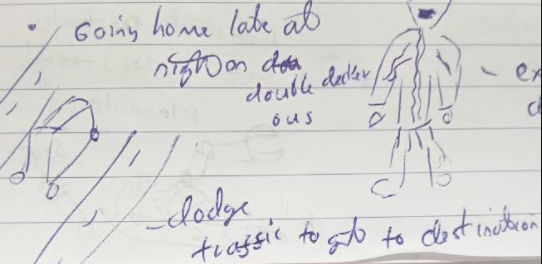 • Going home late at
night on
double decker
bus
- ex
- dodge
traffic to get to destination